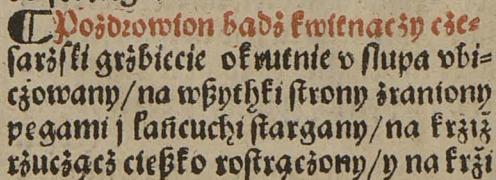 Pozdrowion badz kwitnaczy cze⸗
ſarzſki grzbiecie okrutnie v ſlupa vbi⸗
czowany/na wßythki ſtrony zraniony
pegami j lancuchi ſtargany/na krziż
rzuczącz cießko roſtrączony/y na krzi